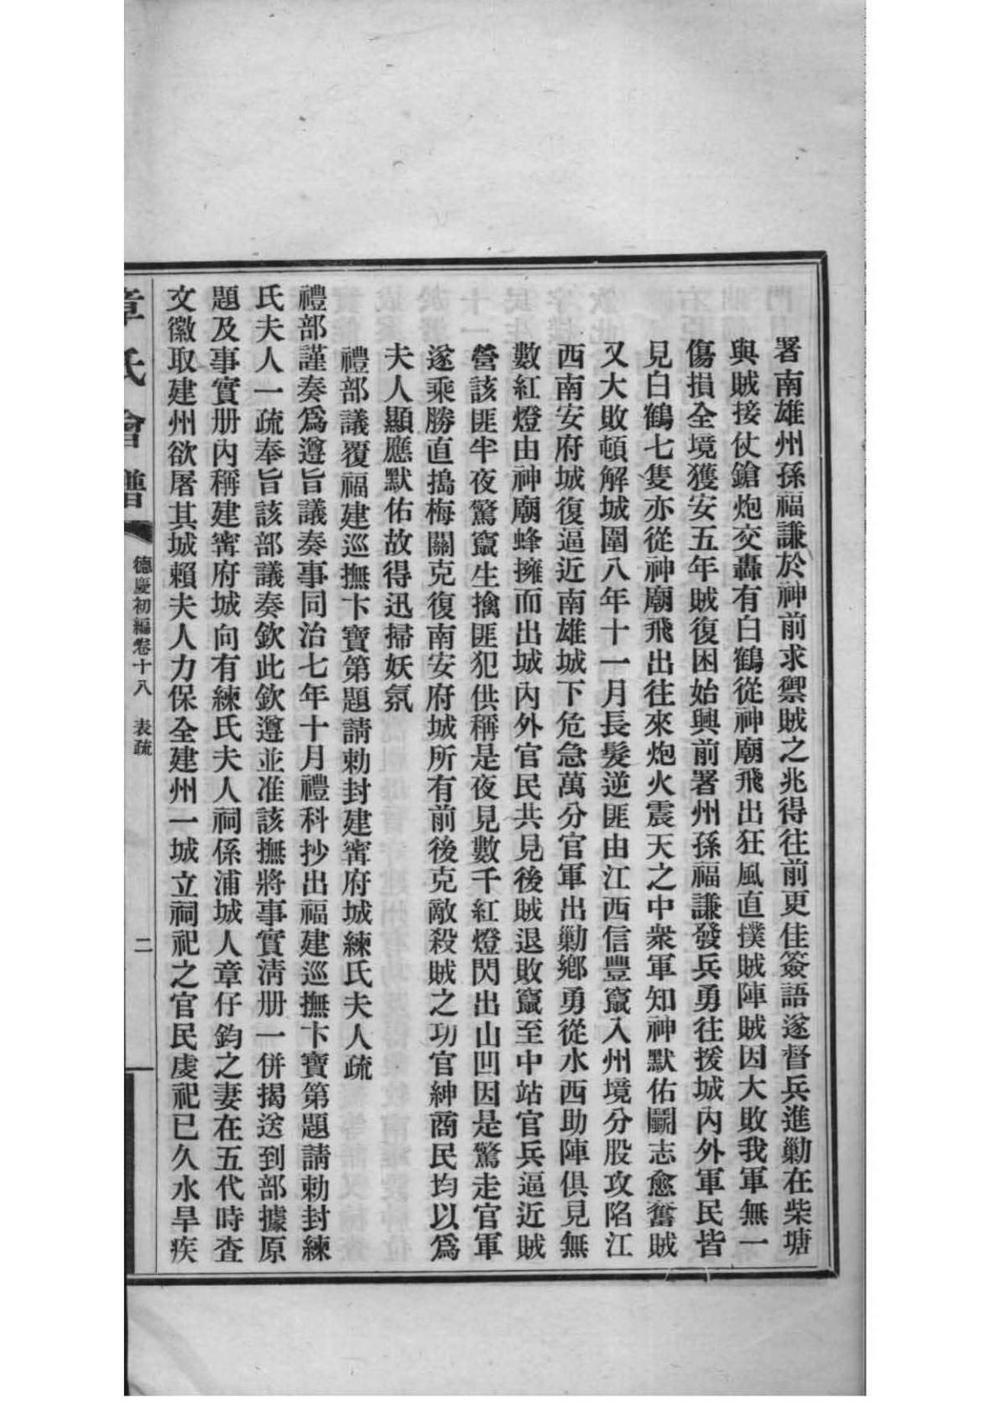 署南雄州孫福謙於神前求禦賊之兆得往前更佳簽語遂督兵進勦在柴塘
與賊接仗鎗炮交轟有白鶴從神廟飛出狂風直撲賊陣賊因大敗我軍無一
傷損全境獲安五年賊復困始興前署州孫福謙發兵勇往援城內外軍民皆
見白鶴七隻亦從神廟飛出往來炮火震天之中衆軍知神默佑鬭志愈奮賊
又大敗頓解城圍八年十一月長髮逆匪由江西信豐竄入州境分股攻陷江
西南安府城復逼近南雄城下危急萬分官軍出勦鄉勇從水西助陣俱見無
數紅燈由神廟蜂擁而出城內外官民共見後賊退敗竄至中站官兵逼近賊
營該匪半夜驚竄生擒匪犯供稱是夜見數千紅燈閃出山凹因是驚走官軍
遂乘勝直搗梅關克復南安府城所有前後克敵殺賊之功官紳商民均以爲
夫人顯應默佑故得迅掃妖氛
禮部議覆福建巡撫卞寶第題請勅封建甯府城練氏夫人疏
禮部謹奏爲遵旨議奏事同治七年十月禮科抄出福建巡撫卞寶第題請勅封練
氏夫人一疏奉旨該部議奏欽此欽遵並准該撫將事實淸册一併揭送到部據原
題及事實册內稱建甯府城向有練氏夫人祠係浦城人章仔鈞之妻在五代時査
文徽取建州欲屠其城賴夫人力保全建州一城立祠祀之官民虔祀已久水旱疾
章氏會譜
德慶初編卷十八 表疏
二